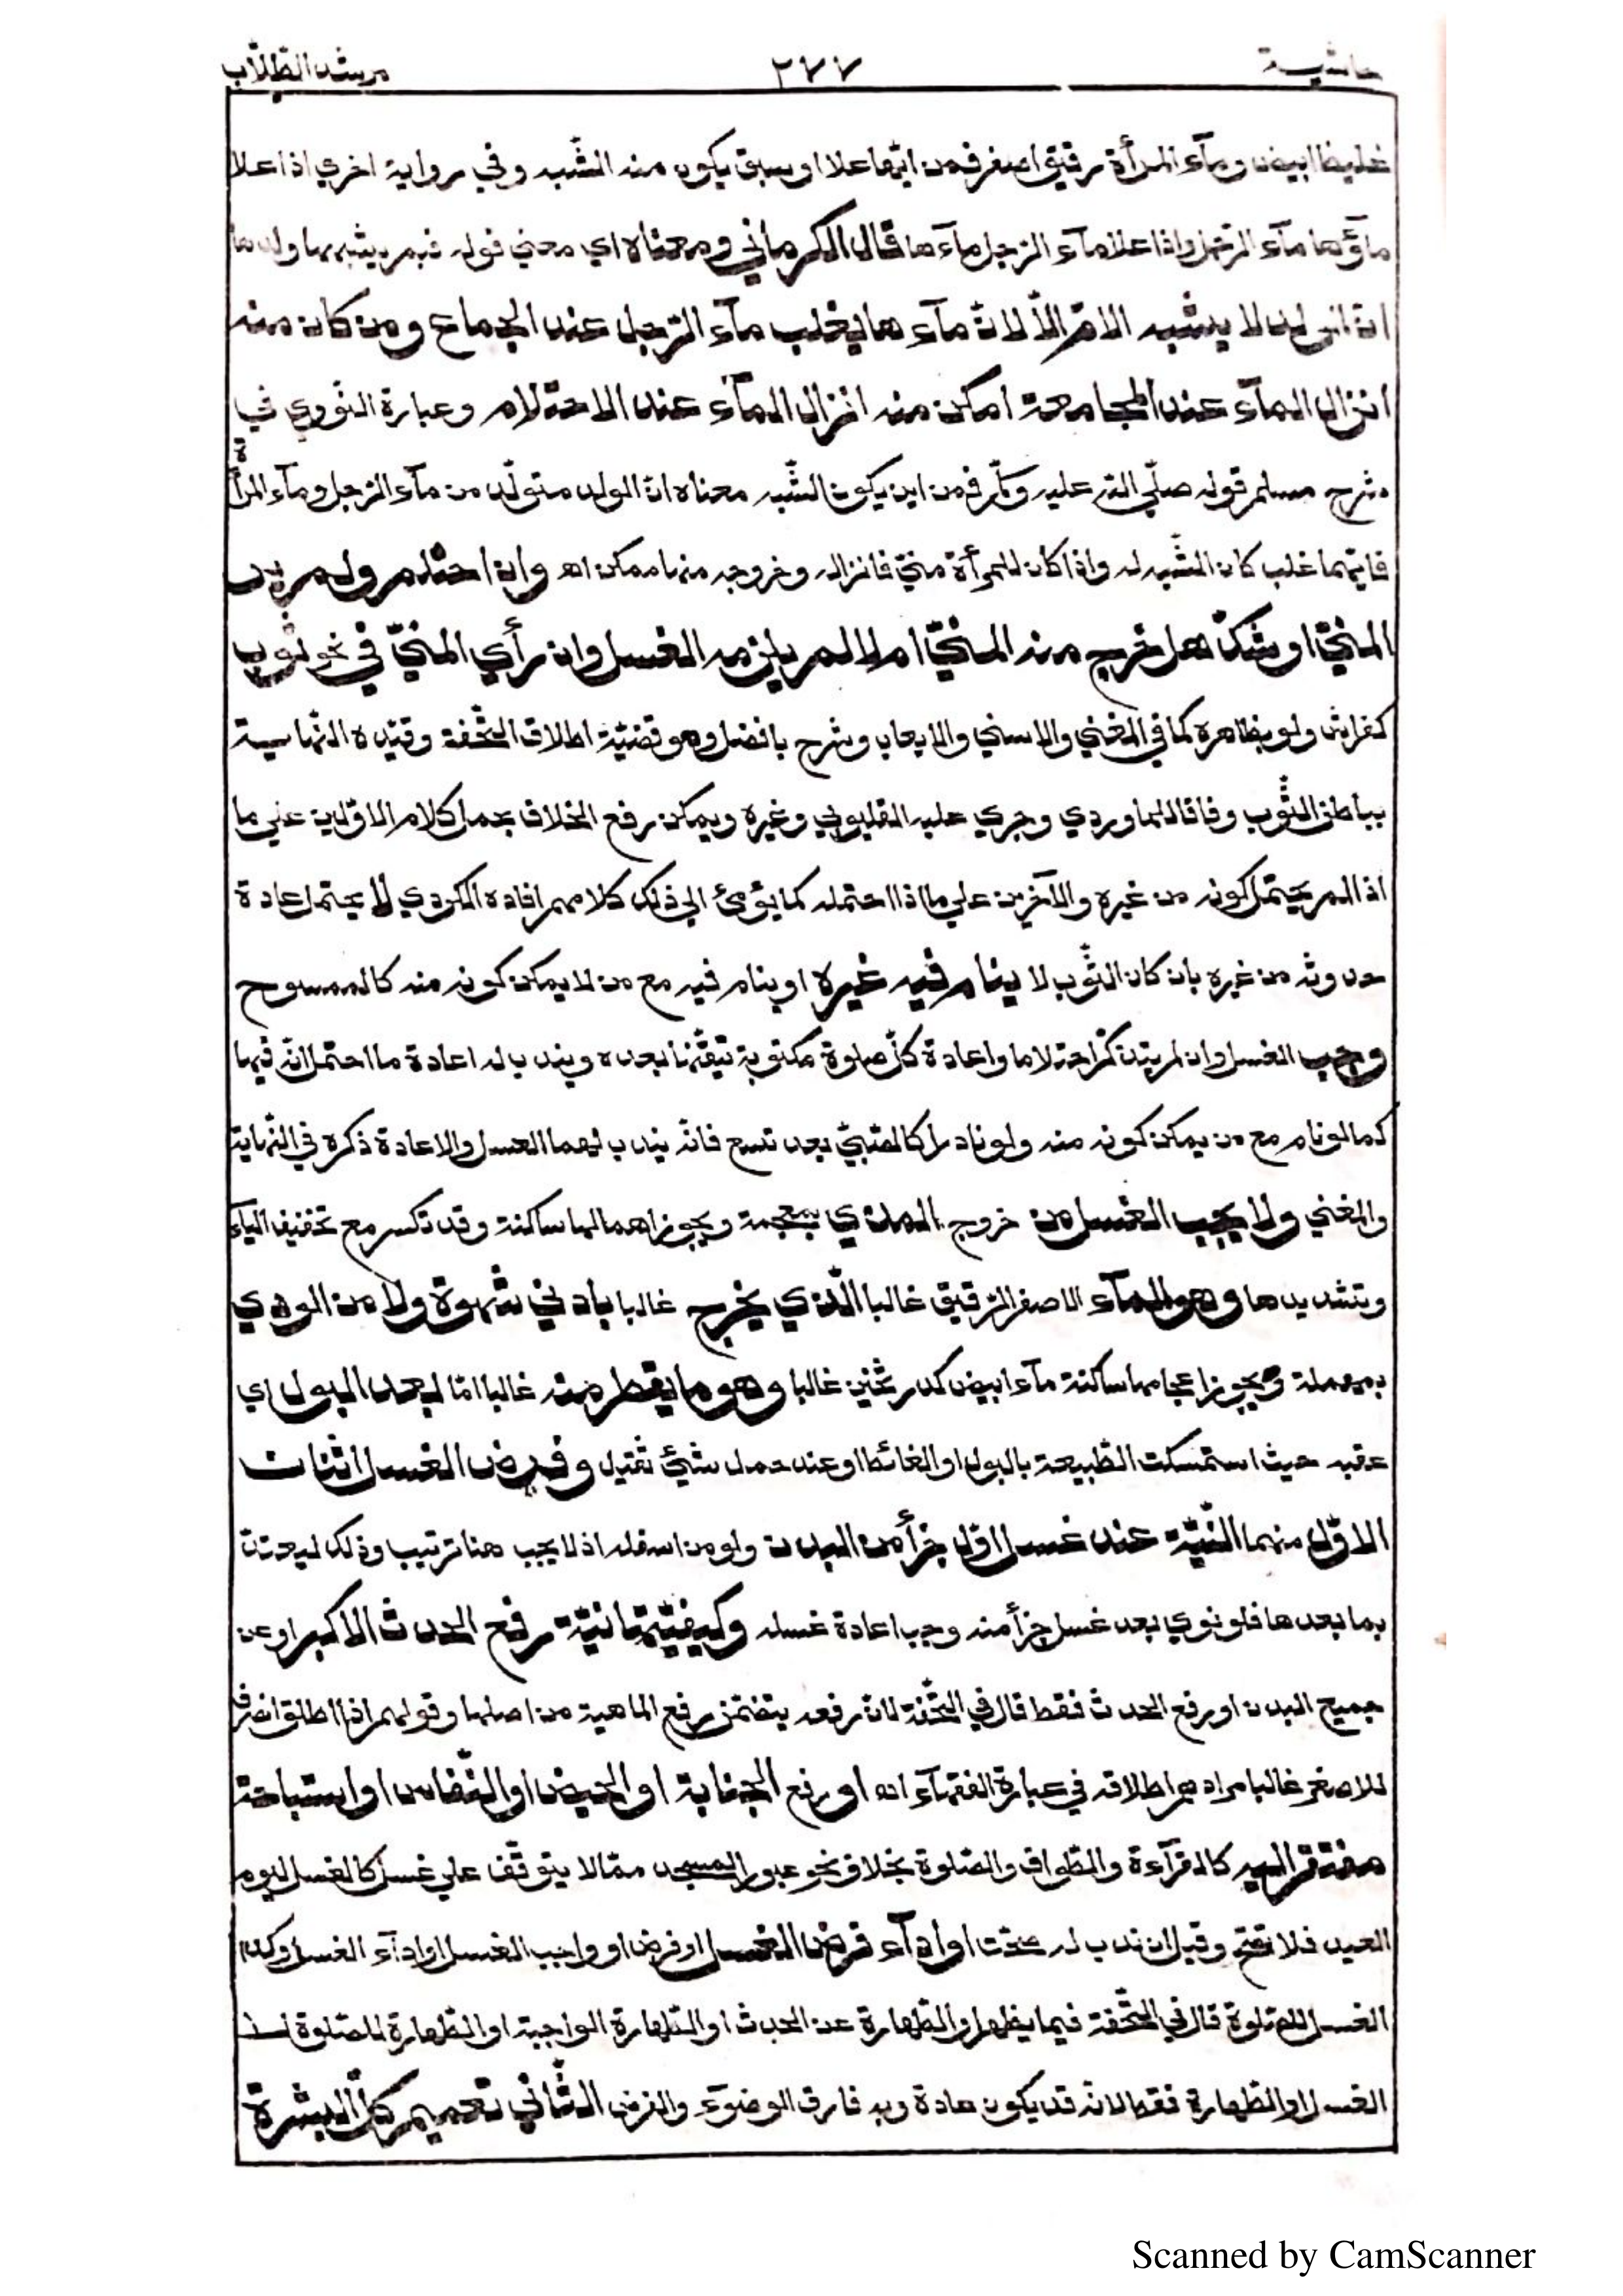 حاشية ٢٧٧ مرشد الطّلّاب
غليظ ابيض ومآء المرأة رقيق اصفر فمن ايّهما علا او سبق يكون منه الشّبه وفي رواية اخري اذا علا
مآؤها مآء الرّجل واذا علا مآء الرّجل مآءها قال الكرماني ومعناه اي معني قوله فبم يشبهها ولدها
انّ الولد لا يشبه الامّ الّا لانّ مآءها يغلب مآء الرّجل عند الجماع ومن كان منه
انزال المآء عند المجامعة امكن منه انزال المآء عند الاحتلام وعبارة النّووي في
شرح مسلم قوله صلّي الله عليه وسلّم فمن اين يكون الشّبه معناه انّ الولد متولّد من مآء الرّجل ومآء المرأة
فايّهما غلب كان الشّبه له واذا كان للمرأة منيّ فانزاله وخروجه منها ممكن اه وان احتلم ولم ير
المنيّ او شكّ هل خرج منه المنيّ ام لا لم يلزمه الغسل وان رأي المنيّ في نحو ثوب
كفراش ولو بظاهره كما في المغني والاسني والايعاب وشرح بافضل وهو قضيّة اطلاق التّحفة وقيّده النّهاية
بباطن الثّوب وفاقا للماوردي وجري عليه القليوبي وغيره ويمكن رفع الخلاف بحمل كلام الاوّلين علي ما
اذا لم يحتمل كونه من غيره والآخرين علي ما اذا احتمله كما يؤمئ الي ذلك كلامهم افاده الكردي لا يحتمل عادة
حدوثه من غيره بان كان الثّوب لا ينام فيه غيره او ينام فيه مع من لا يمكن كونه منه كالممسوح
وجب الغسل وان لم يتذكّر احتلاما واعادة كلّ صلوة مكتوبة تيقّنها بعده ويندب له اعادة ما احتمل انّه فيها
كما لو نام مع من يمكن كونه منه ولو نادرا كالصّبيّ بعد تسع فانّه يندب لهما الغسل والاعادة ذكره في النّهاية
والمغني ولا يجب الغسل من خروج المذي بمعجمة ويجوز اهمالها ساكنة وقد تكسر مع تخفيف اليآء
وتشديدها وهو المآء الاصفر الرّقيق غالبا الّذي يخرج غالبا بادني شهوة ولا من الودي
بمهملة ويجوز اعجامها ساكنة مآء ابيض كدر ثخين غالبا وهو ما يقطر منه غالبا امّا بعد البول اي
عقبه حيث استمسكت الطّبيعة بالبول او الغائط او عند حمل شيئ ثقيل وفرض الغسل اثنان
الاوّل منهما النّيّة عند غسل اوّل جزأ من البدن ولو من اسفله اذ لا يجب هنا ترتيب وذلك ليعتدّ
بما بعدها فلو نوي بعد غسل جزأ منه وجب اعادة غسله وكيفيّتها نيّة رفع الحدث الاكبر او عن
جميع البدن او رفع الحدث فقط قال في التّحفة لانّ رفعه يتضمّن رفع الماهية من اصلها وقولهم اذا اطلق انصرف
للاصغر غالبا مرادهم اطلاقه في عبارة الفقهآء اه او رفع الجنابة او الحيض او النّفاس او استباحة
مفتقر اليه كالقرآءة والطّواف والصّلوة بخلاف نحو عبور المسجد ممّا لا يتوقّف علي غسل كالغسل ليوم
العيد فلا تصحّ وقيل ان ندب له صحّت او ادآء فرض الغسل او فرض او واجب الغسل او ادآء الغسل وكذا
الغسل للصّلوة قال في التّحفة فيما يظهر او الطّهارة عن الحدث او الطّهارة الواجبة او الطّهارة للصّلوة لا
الغسل او الطّهارة فقط لانّه قد يكون عادة وبه فارق الوضوء والفرض الثّاني تعميم كلّ البشرة
Scanned by CamScanner